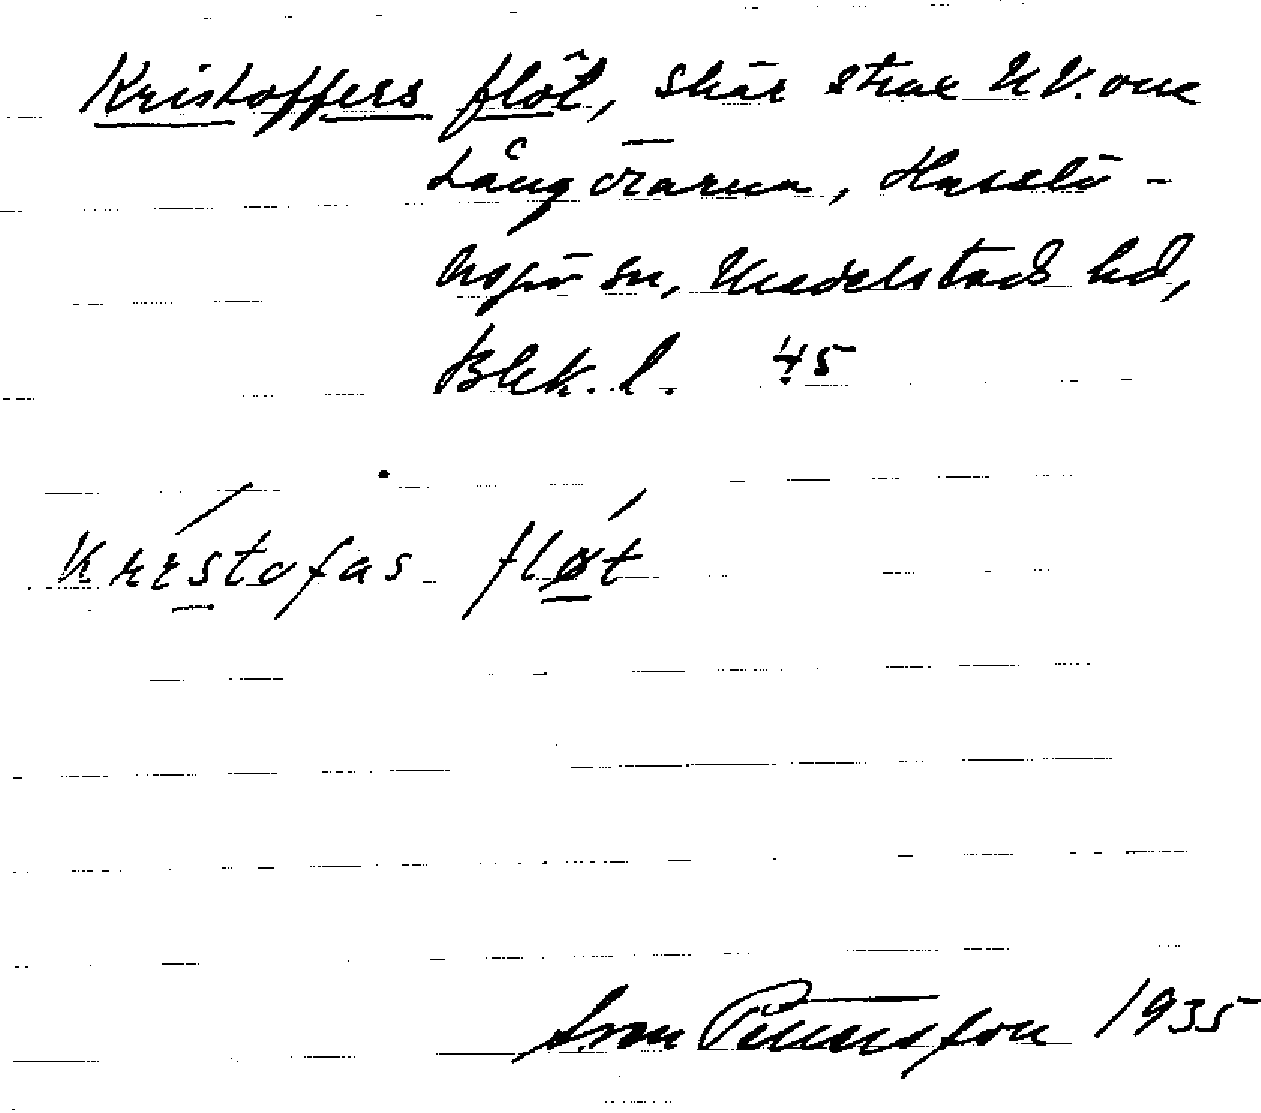 Kristoffers flöt, skär strax NV. om
Långörarna, Hasslö-
Aspö sn, Medelstads hd,
Blek. l. 45
Kristofas fløt
Sven Petersson 1935